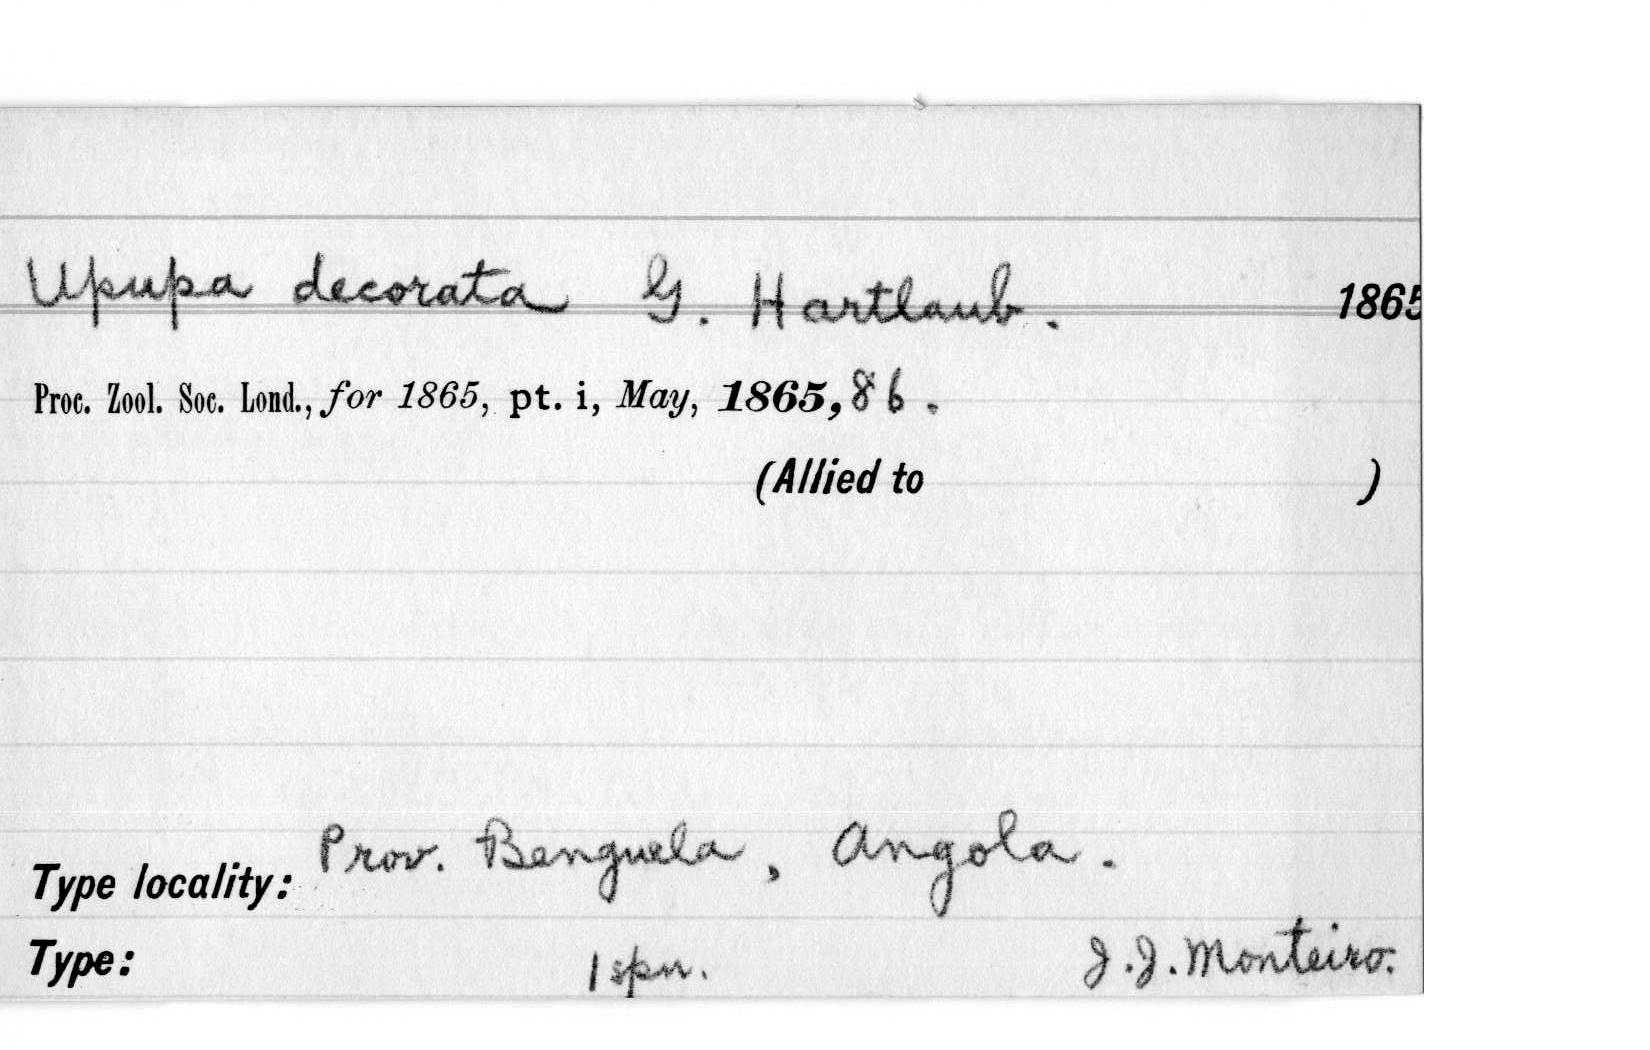 Upupa decorata G. Hartlaub. 1865
Proc. Zool. Soc. Lond., for 1865, pt. i, May, 1865, 86.
(Allied to )
Type locality: Prov. Benguela, Angola.
Type: 1 spn. J.J. Monteiro.